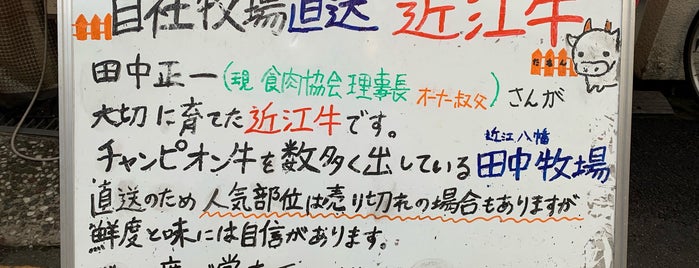 自社牧場直送 近江牛
たなか
田中正一(現 食肉協会理事長 オーナー叔父)さんが
大切に育てた近江牛です。
近江八幡
チャンピオン牛を数多く出している田中牧場
直送のため人気部位は売り切れの場合もありますが
鮮度と味には自信があります。